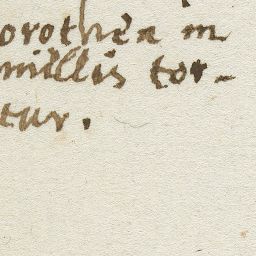 orothea in
millis tor-
tur.